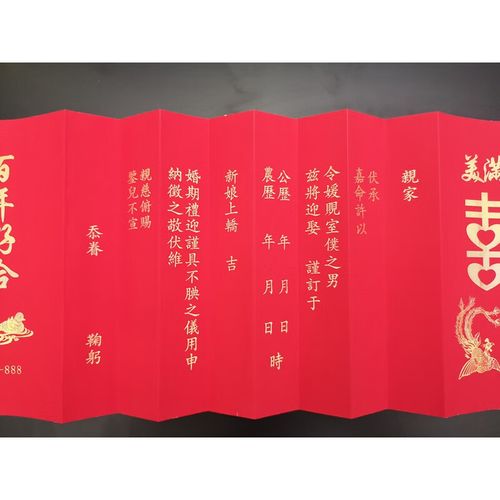 美滿
囍
親家
伏承
嘉命許以
令媛貺室僕之男
茲將迎娶 謹訂于
公歷 年 月 日
農歷 年 月 日 時
新娘上轎 吉
婚期禮迎謹具不腆之儀用申
納徵之敬伏維
親慈俯賜
鑒兒不宣
忝眷 鞠躬
百年好合
-888